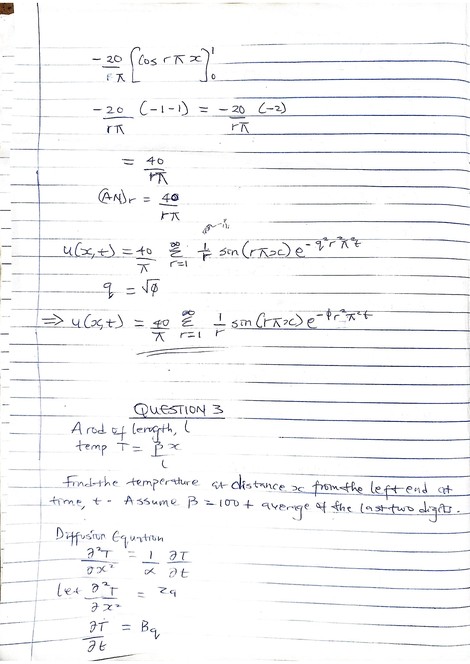 -20/rπ [Cos rπx]¹₀
-20/rπ (-1-1) = -20/rπ (-2)
= 40/rπ
(AN)r = 40/rπ
u(x,t) = 40/π ∞Σr=1 1/r sin(rπx) e^-q²r²π²t
q = √φ
⇒ u(x,t) = 40/π ∞Σr=1 1/r sin(rπx) e^-φr²π²t
QUESTION 3
A rod of length, l
temp T = β/l x
Find the temperature at distance x from the left end at
time, t. Assume β = 100 + average of the last two digits.
Diffusion Equation
∂²T/∂x² = 1/α ∂T/∂t
Let ∂²T/∂x² = Zq
∂T/∂t = Bq